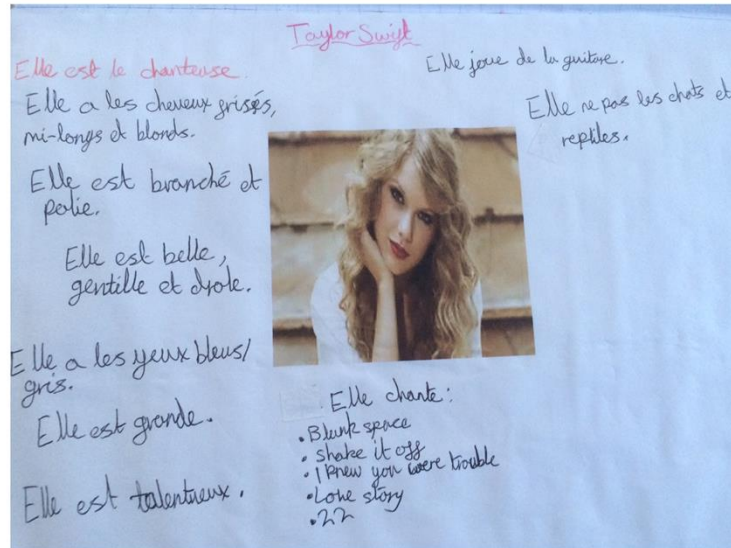 Taylor Swift
Elle est le chanteuse.
Elle a les cheveux frisés,
mi-longs et blonds.
Elle est branché et
polie.
Elle est belle,
gentille et drole.
Elle a les yeux bleus/
gris.
Elle est grande.
Elle est talentueux.
Elle joue de la guitare.
Elle ne pas les chats et
reptiles.
Elle chante:
• Blunk space
• shake it off
• I knew you were trouble
• Love story
• 22